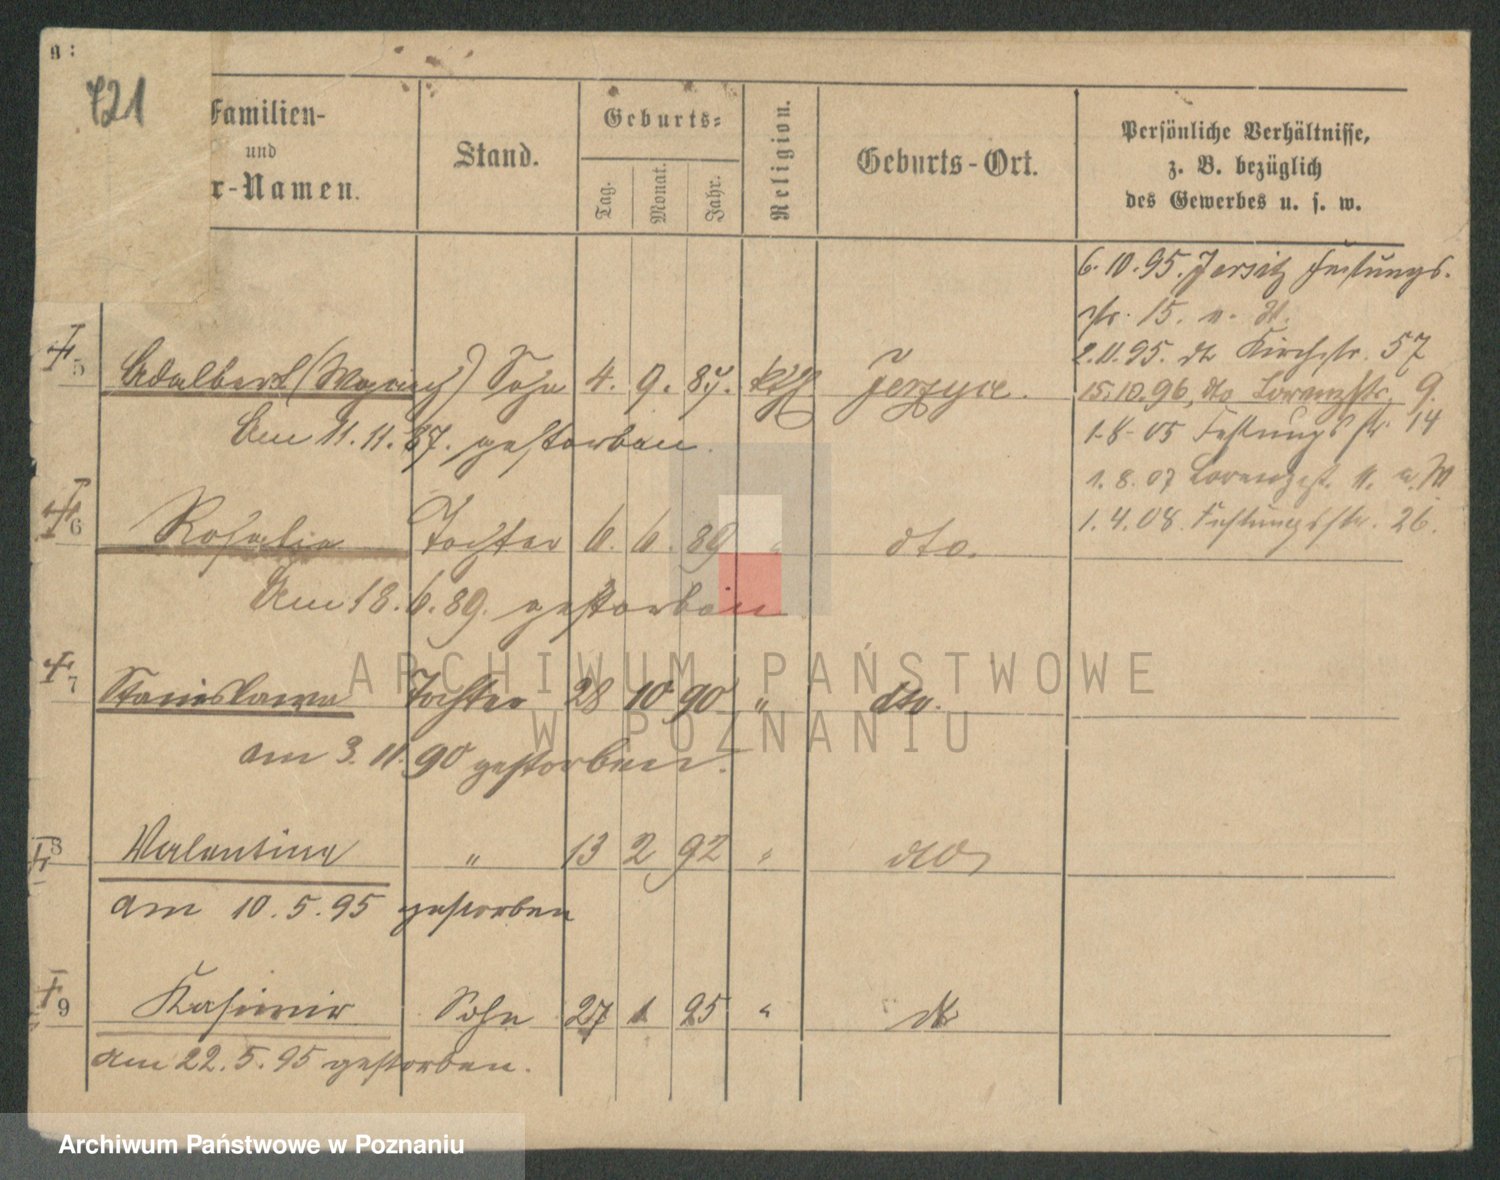 721
Familien-
und
r-Namen.
Stand.
Geburts-
Tag.
Monat.
Jahr.
Religion.
Geburts-Ort.
Persönliche Verhältnisse,
z. B. bezüglich
des Gewerbes u. s. w.
6.10.95. Jersitz Festungs-
str. 15.
2.11.95. dto Kirchstr. 57
15.10.96, dto Lorenzstr. 9.
1.8.05 Festungsstr 14
1.8.07 Lorenzstr. 11.
1.4.08. Festungsstr. 26.
5 Adalbert Sohn 4. 9. 87. kth Jerzyce.
Am 11.11.87. gestorben.
6 Rosalie Tochter 6. 6. 89 " dto.
Am 18.6.89. gestorben
7 Stanislawa Tochter 28 10 90 " dto.
am 3.11.90 gestorben.
8 Valentina " 13 2 92 " dto
am 10.5.95 gestorben
9 Kasimir Sohn 27 1 95 " dto
am 22.5.95 gestorben.
ARCHIWUM PAŃSTWOWE
W POZNANIU
Archiwum Państwowe w Poznaniu